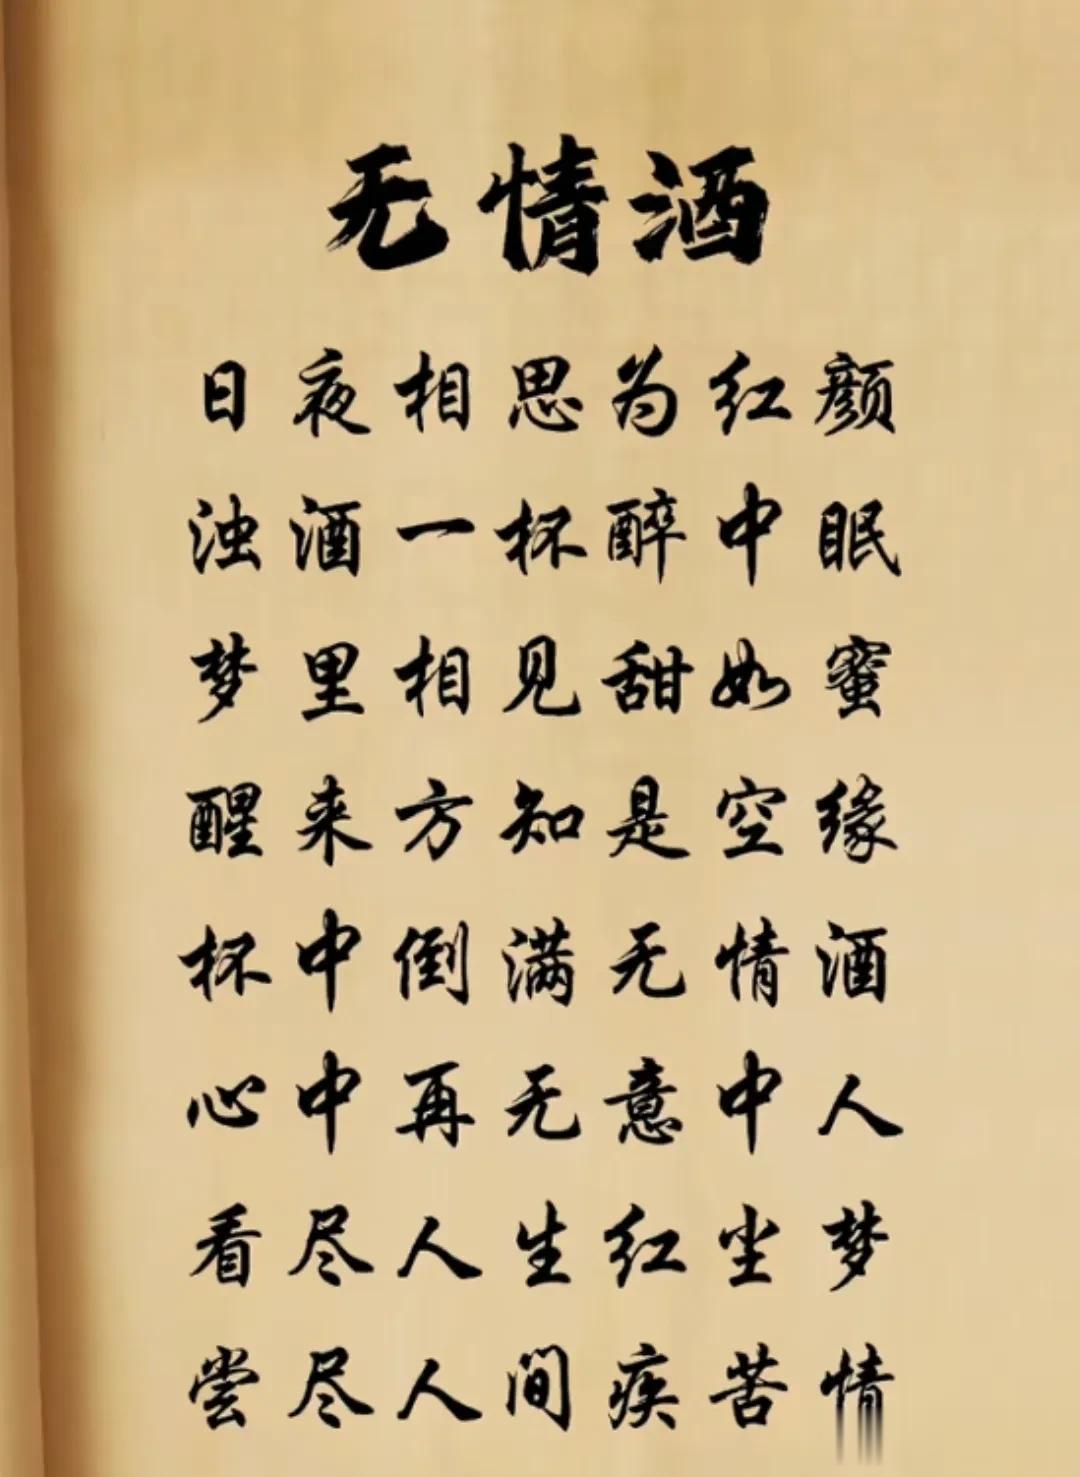 无情酒
日夜相思为红颜
浊酒一杯醉中眠
梦里相见甜如蜜
醒来方知是空缘
杯中倒满无情酒
心中再无意中人
看尽人生红尘梦
尝尽人间疾苦情